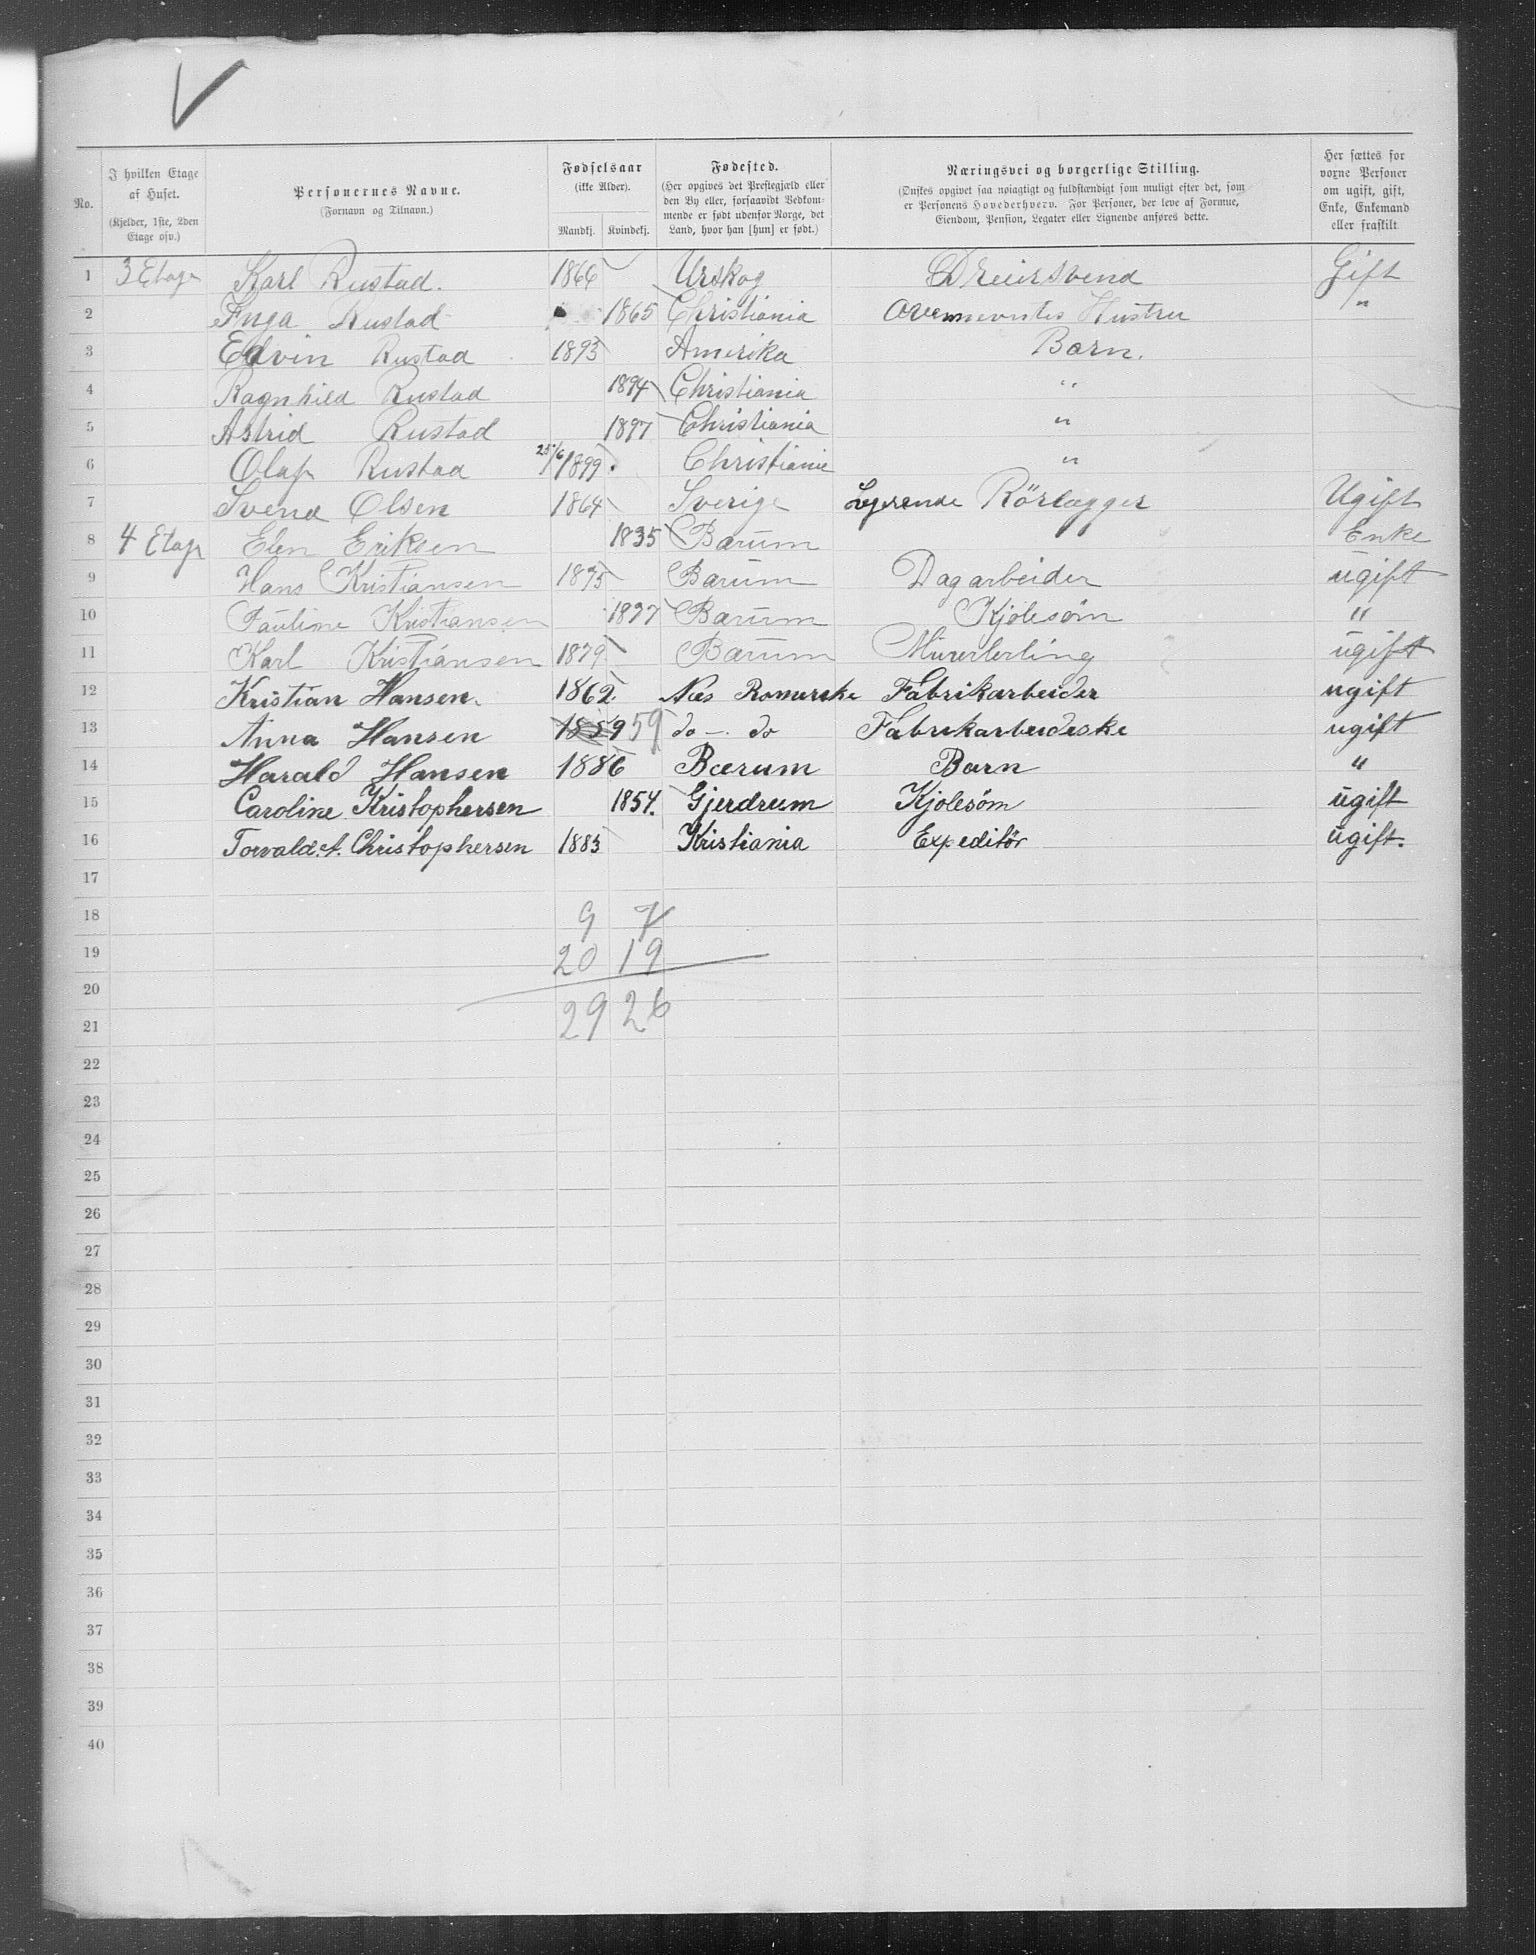 No.
I hvilken Etage af Huset.
(Kjelder, 1ste, 2den Etage osv.)
Personernes Navne.
(Fornavn og Tilnavn.)
Fødselsaar
(ikke Alder).
Mandkj. Kvindekj.
Fødested.
(Her opgives det Prestegjæld eller den By eller, forsaavidt Vedkommende er født udenfor Norge, det Land, hvor han [hun] er født.)
Næringsvei og borgerlige Stilling.
(Ønskes opgivet saa nøiagtigt og fuldstændigt som muligt efter det, som er Personens Hovederhverv. For Personer, der leve af Formue, Eiendom, Pension, Legater eller Lignende anføres dette.
Her sættes for voxne Personer om ugift, gift, Enke, Enkemand eller fraskilt
1 3 Etage Karl Rustad. 1866 Urskog Dreiersvend Gift
2 Inga Rustad 1865 Christiania Ovennevntes Hustru "
3 Edvin Rustad 1893 Amerika Barn.
4 Ragnhild Rustad 1894 Christiania "
5 Astrid Rustad 1897 Christiania "
6 Olaf Rustad 25/6 1899. Christiania "
7 Svend Olsen 1864 Sverige Logerende Rörlægger Ugift
8 4 Etage Elen Eriksen 1835 Bærum Enke
9 Hans Kristiansen 1875 Bærum Dagarbeider ugift
10 Pauline Kristiansen 1877 Bærum Kjolesøm "
11 Karl Kristiansen 1879 Bærum Murerlerling ugift
12 Kristian Hansen. 1862. Næs Romerike Fabrikarbeider ugift
13 Anna Hansen 1859 59 do - do Fabrikarbeideske ugift
14 Harald Hansen 1886 Bærum Barn "
15 Caroline Kristophersen 1854. Gjerdrum Kjolesøm ugift
16 Torvald. A. Christophersen 1883 Kristiania Expeditør ugift.
17
18 9 7
19 20 19
20
21 29 26
22
23
24
25
26
27
28
29
30
31
32
33
34
35
36
37
38
39
40